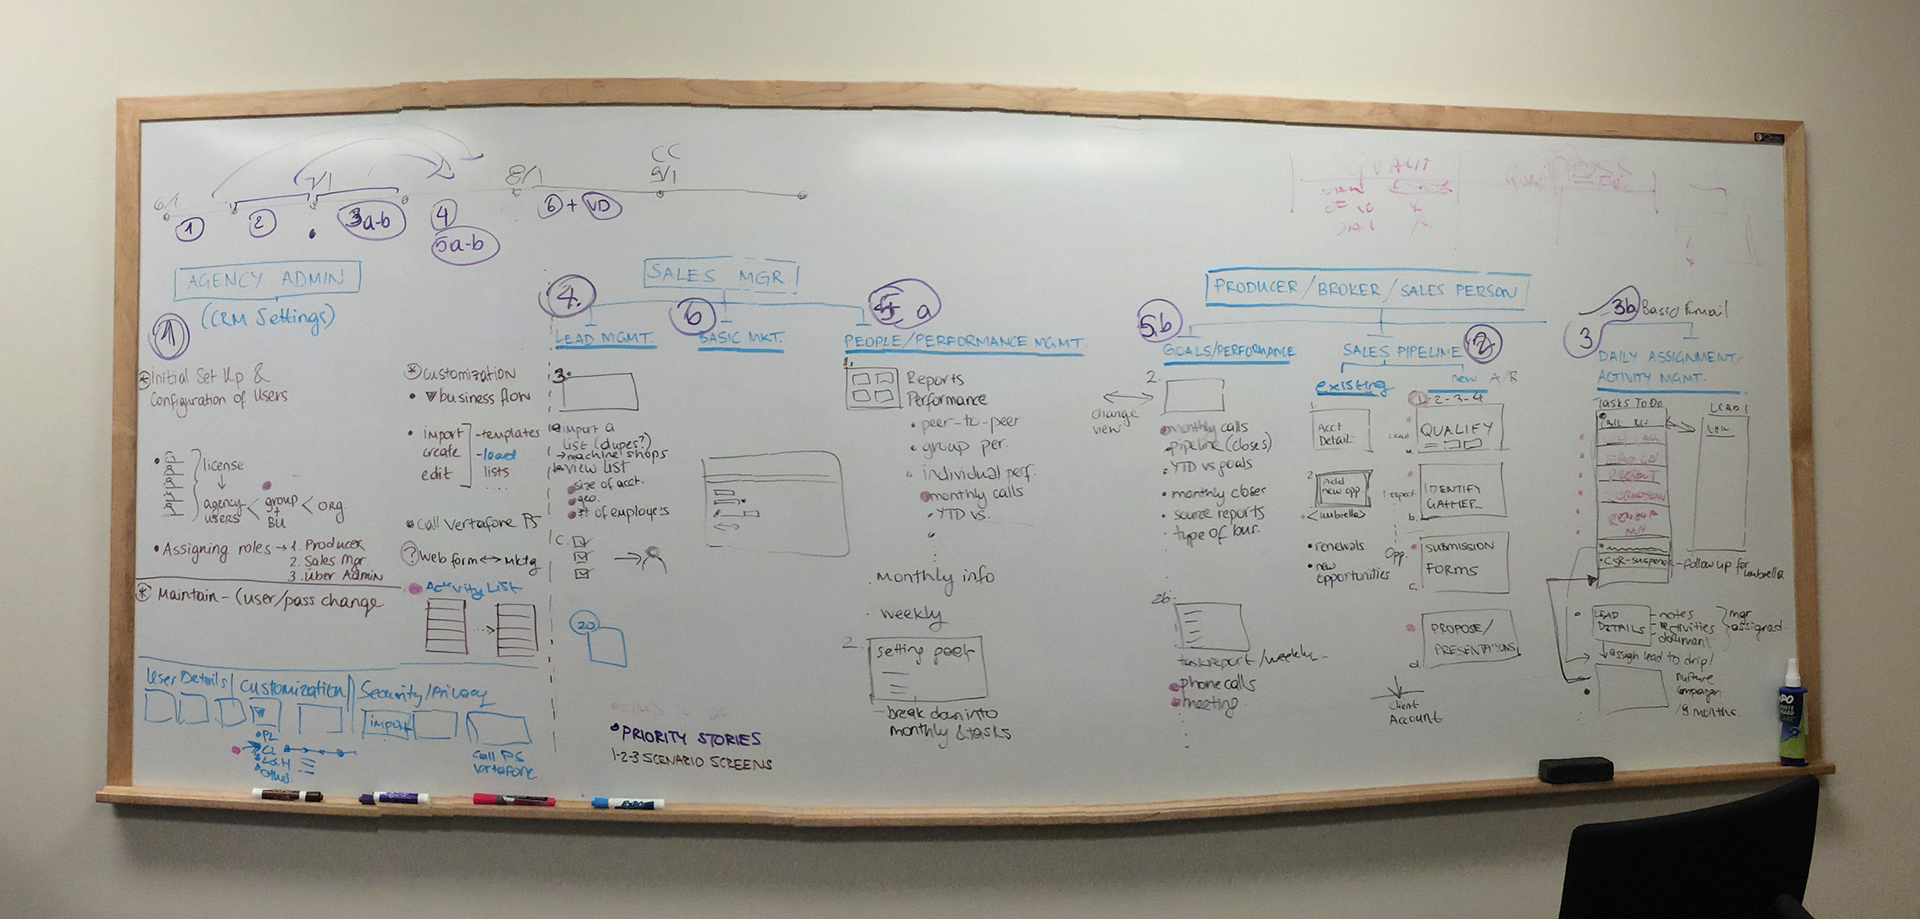 6/1
7/1
8/1
CC
9/1
1
2
3a-b
4
5a-b
6 + VD
AGENCY ADMIN
(CRM Settings)
1
Initial Set Up &
Configuration of Users
license
agency users < group + BU < ORG.
• Assigning roles → 1. Producer
2. Sales Mgr.
3. Uber Admin
* Maintain - (user/pass change
* customization
• business flow
• import
create
edit
-templates
-lead
lists
• Call Vertafore PS
? web form ↔ mktg
Activity List
User Details
Customization
Security/Privacy
import
• PL
CL
L&H
Other
Call PS
Vertafore
SALES MGR
4.
LEAD MGMT.
3.
import a
list (dupes?)
→ machine shops
view list
size of acct.
geo.
# of employers
C.
20
6
BASIC MKT.
• PRIORITY STORIES
1-2-3 SCENARIO SCREENS
5 a
PEOPLE/PERFORMANCE MGMT.
1.
Reports
Performance
• peer-to-peer
• group per.
• individual perf.
monthly calls
• YTD vs.
• monthly info
• weekly
2.
setting goals
- break down into
monthly & tasks
change
view
PRODUCER/BROKER/SALES PERSON
5b
GOALS/PERFORMANCE
2.
monthly calls
pipeline (closes)
• YTD vs. goals
• monthly closer
• source reports
type of bus.
2b.
task report/weekly
phone calls
meeting
SALES PIPELINE
2
existing
Acct
Detail
2
Add
new opp
<umbrella>
• renewals
• new
opportunities
new A/R
1-2-3-4
Lead
QUALIFY
b.
IDENTIFY
GATHER
Opp.
SUBMISSION
FORMS
c.
PROPOSE/
PRESENTATIONS
d.
Client
Account
3b
Basic Email
3
DAILY ASSIGNMENT/
ACTIVITY MGMT.
Tasks To Do
LEAD 1
• CSR-suspense
- follow up for
umbrella
LEAD
DETAILS
- notes
- activities
- document
mgr
assigned
assign lead to drip/
nurture
campaign
/9 months.
EXPO